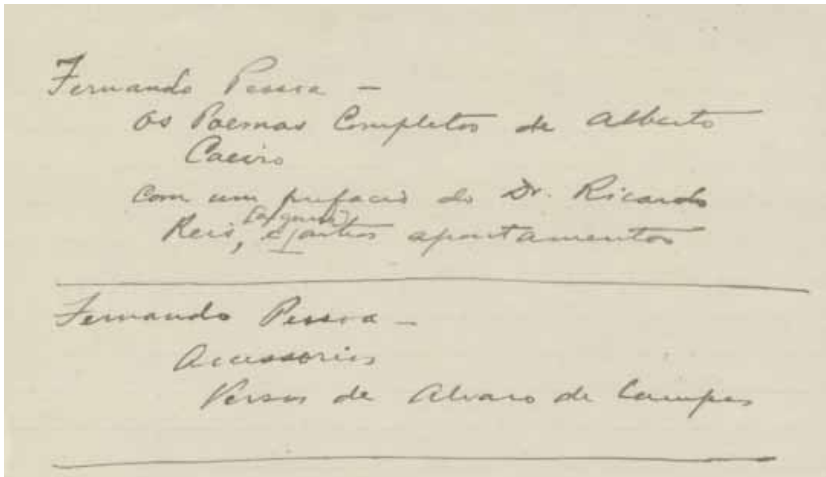 Fernando Pessoa —
Os Poemas Completos de Alberto
Caeiro
com um prefacio do Dr. Ricardo
(alguns)
Reis, e outros apontamentos
Fernando Pessoa —
Accessorios
Versos de Alvaro de Campos